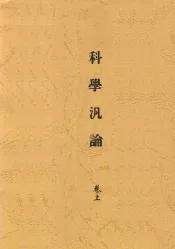 科學汎論
卷上